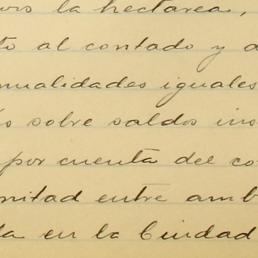 la hectarea,
to al contado y a
nualidades iguales
sobre saldos ins
por cuenta del co
mitad entre amb
da en la Ciudad